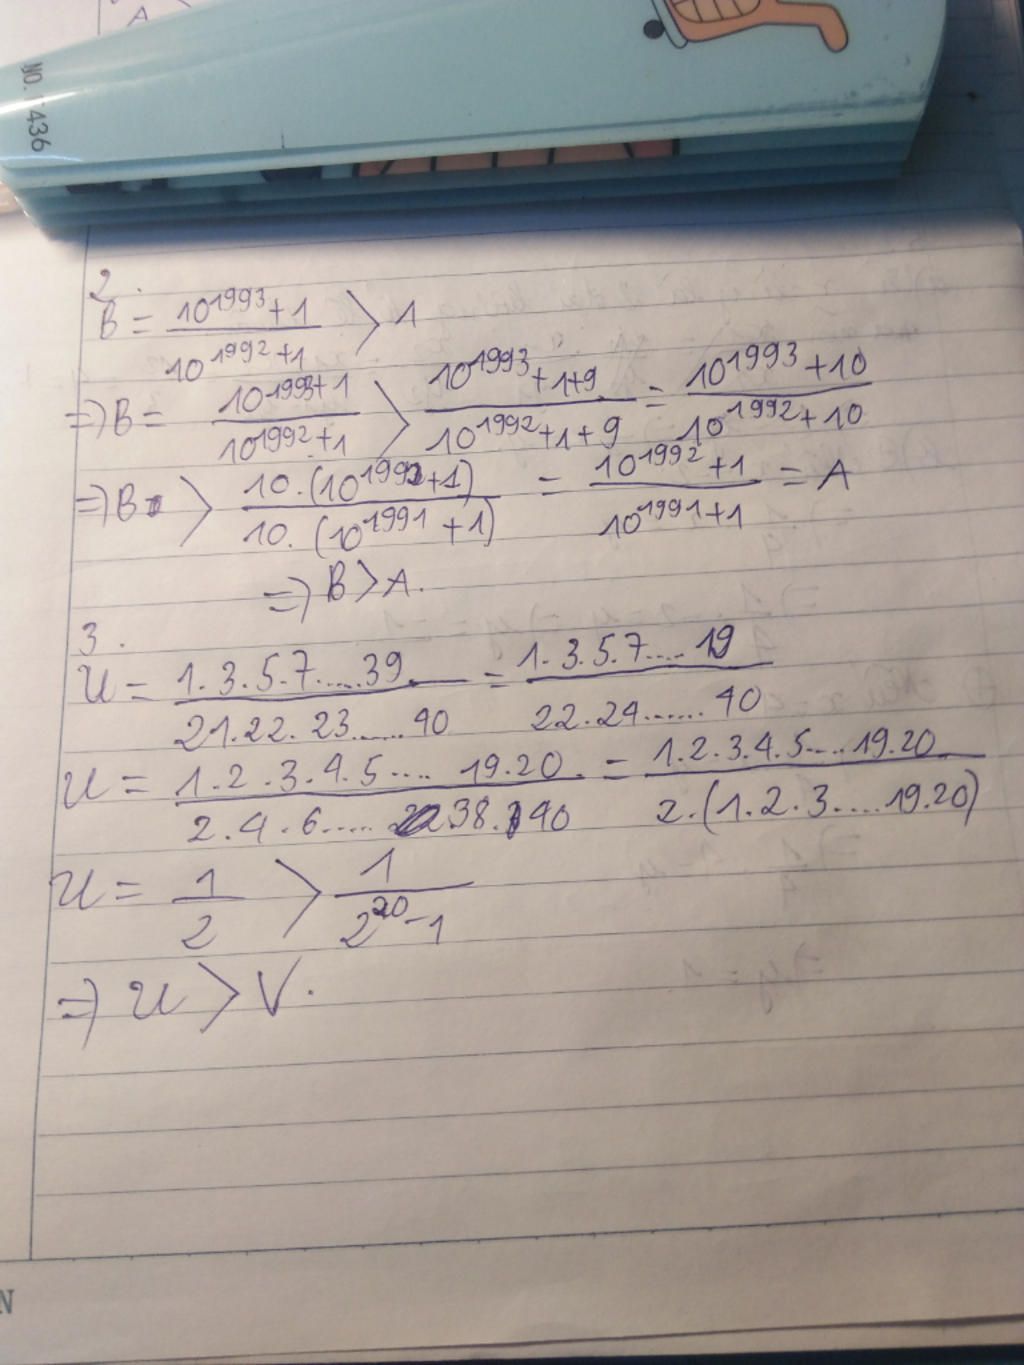 NO. 1436
2.
B = (10^1993 + 1)/(10^1992 + 1) > 1
=> B = (10^1993 + 1)/(10^1992 + 1) > (10^1993 + 1 + 9)/(10^1992 + 1 + 9) = (10^1993 + 10)/(10^1992 + 10)
=> B > (10.(10^1992 + 1))/(10.(10^1991 + 1)) = (10^1992 + 1)/(10^1991 + 1) = A
=> B > A.
3.
U = (1.3.5.7.....39)/(21.22.23......40) = (1.3.5.7....19)/(22.24......40)
U = (1.2.3.4.5.... 19.20)/(2.4.6..... 38.40) = (1.2.3.4.5....19.20)/(2.(1.2.3....19.20))
U = 1/2 > 1/(2^20 - 1)
=> U > V.
N